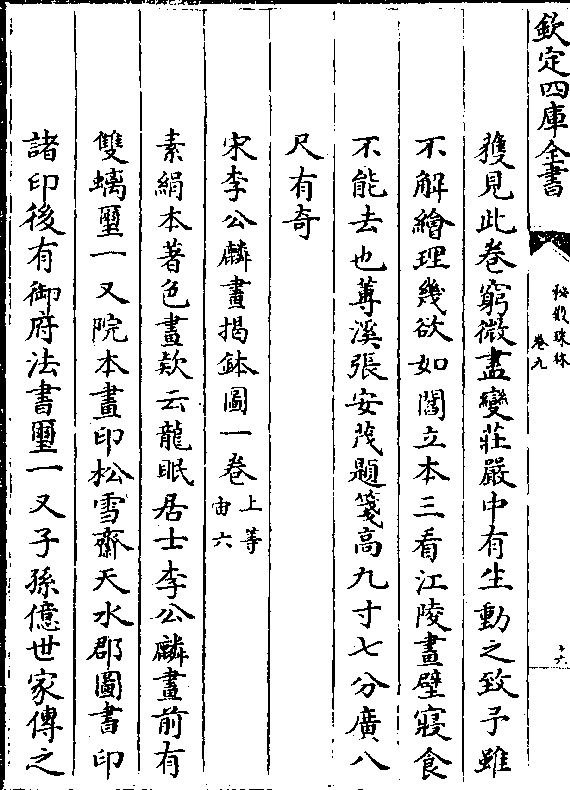 欽定四庫全書
秘殿珠林
卷九
十六
獲見此卷窮微盡變莊嚴中有生動之致予雖
不解繪理幾欲如閻立本三看江陵畫壁寢食
不能去也蓴溪張安茂題箋高九寸七分廣八
尺有奇
宋李公麟畫揭鉢圖一卷上等
宙六
素絹本著色畫款云龍眠居士李公麟畫前有
雙螭璽一又院本畫印松雪齋天水郡圖書印
諸印後有御府法書璽一又子孫億世家傳之